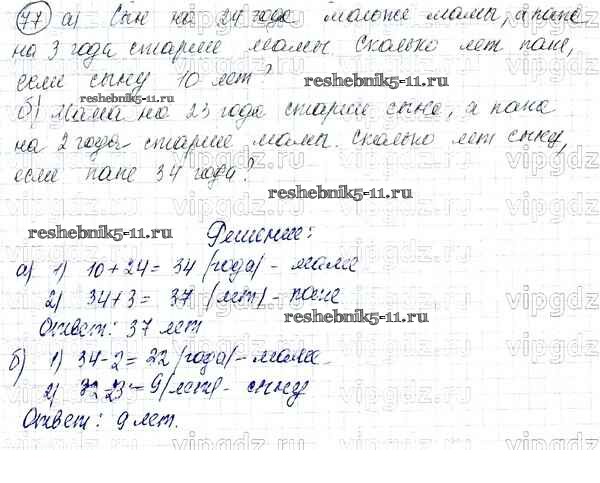 77 а) Сын на 24 года моложе мамы, а папа
на 3 года старше мамы. Сколько лет папе,
если сыну 10 лет?
reshebnik5-11.ru
reshebnik5-11.ru
б) Мама на 23 года старше сына, а папа
на 2 года старше мамы. Сколько лет сыну,
если папе 34 года?
reshebnik5-11.ru
reshebnik5-11.ru
Решение:
а) 1) 10+24= 34 (года) - маме
2) 34+3= 37 (лет) - папе
reshebnik5-11.ru
Ответ: 37 лет
б) 1) 34-2= 22 (года) - маме
2) 32-23 = 9 (лет) - сыну
Ответ: 9 лет.
vipgdz.ru